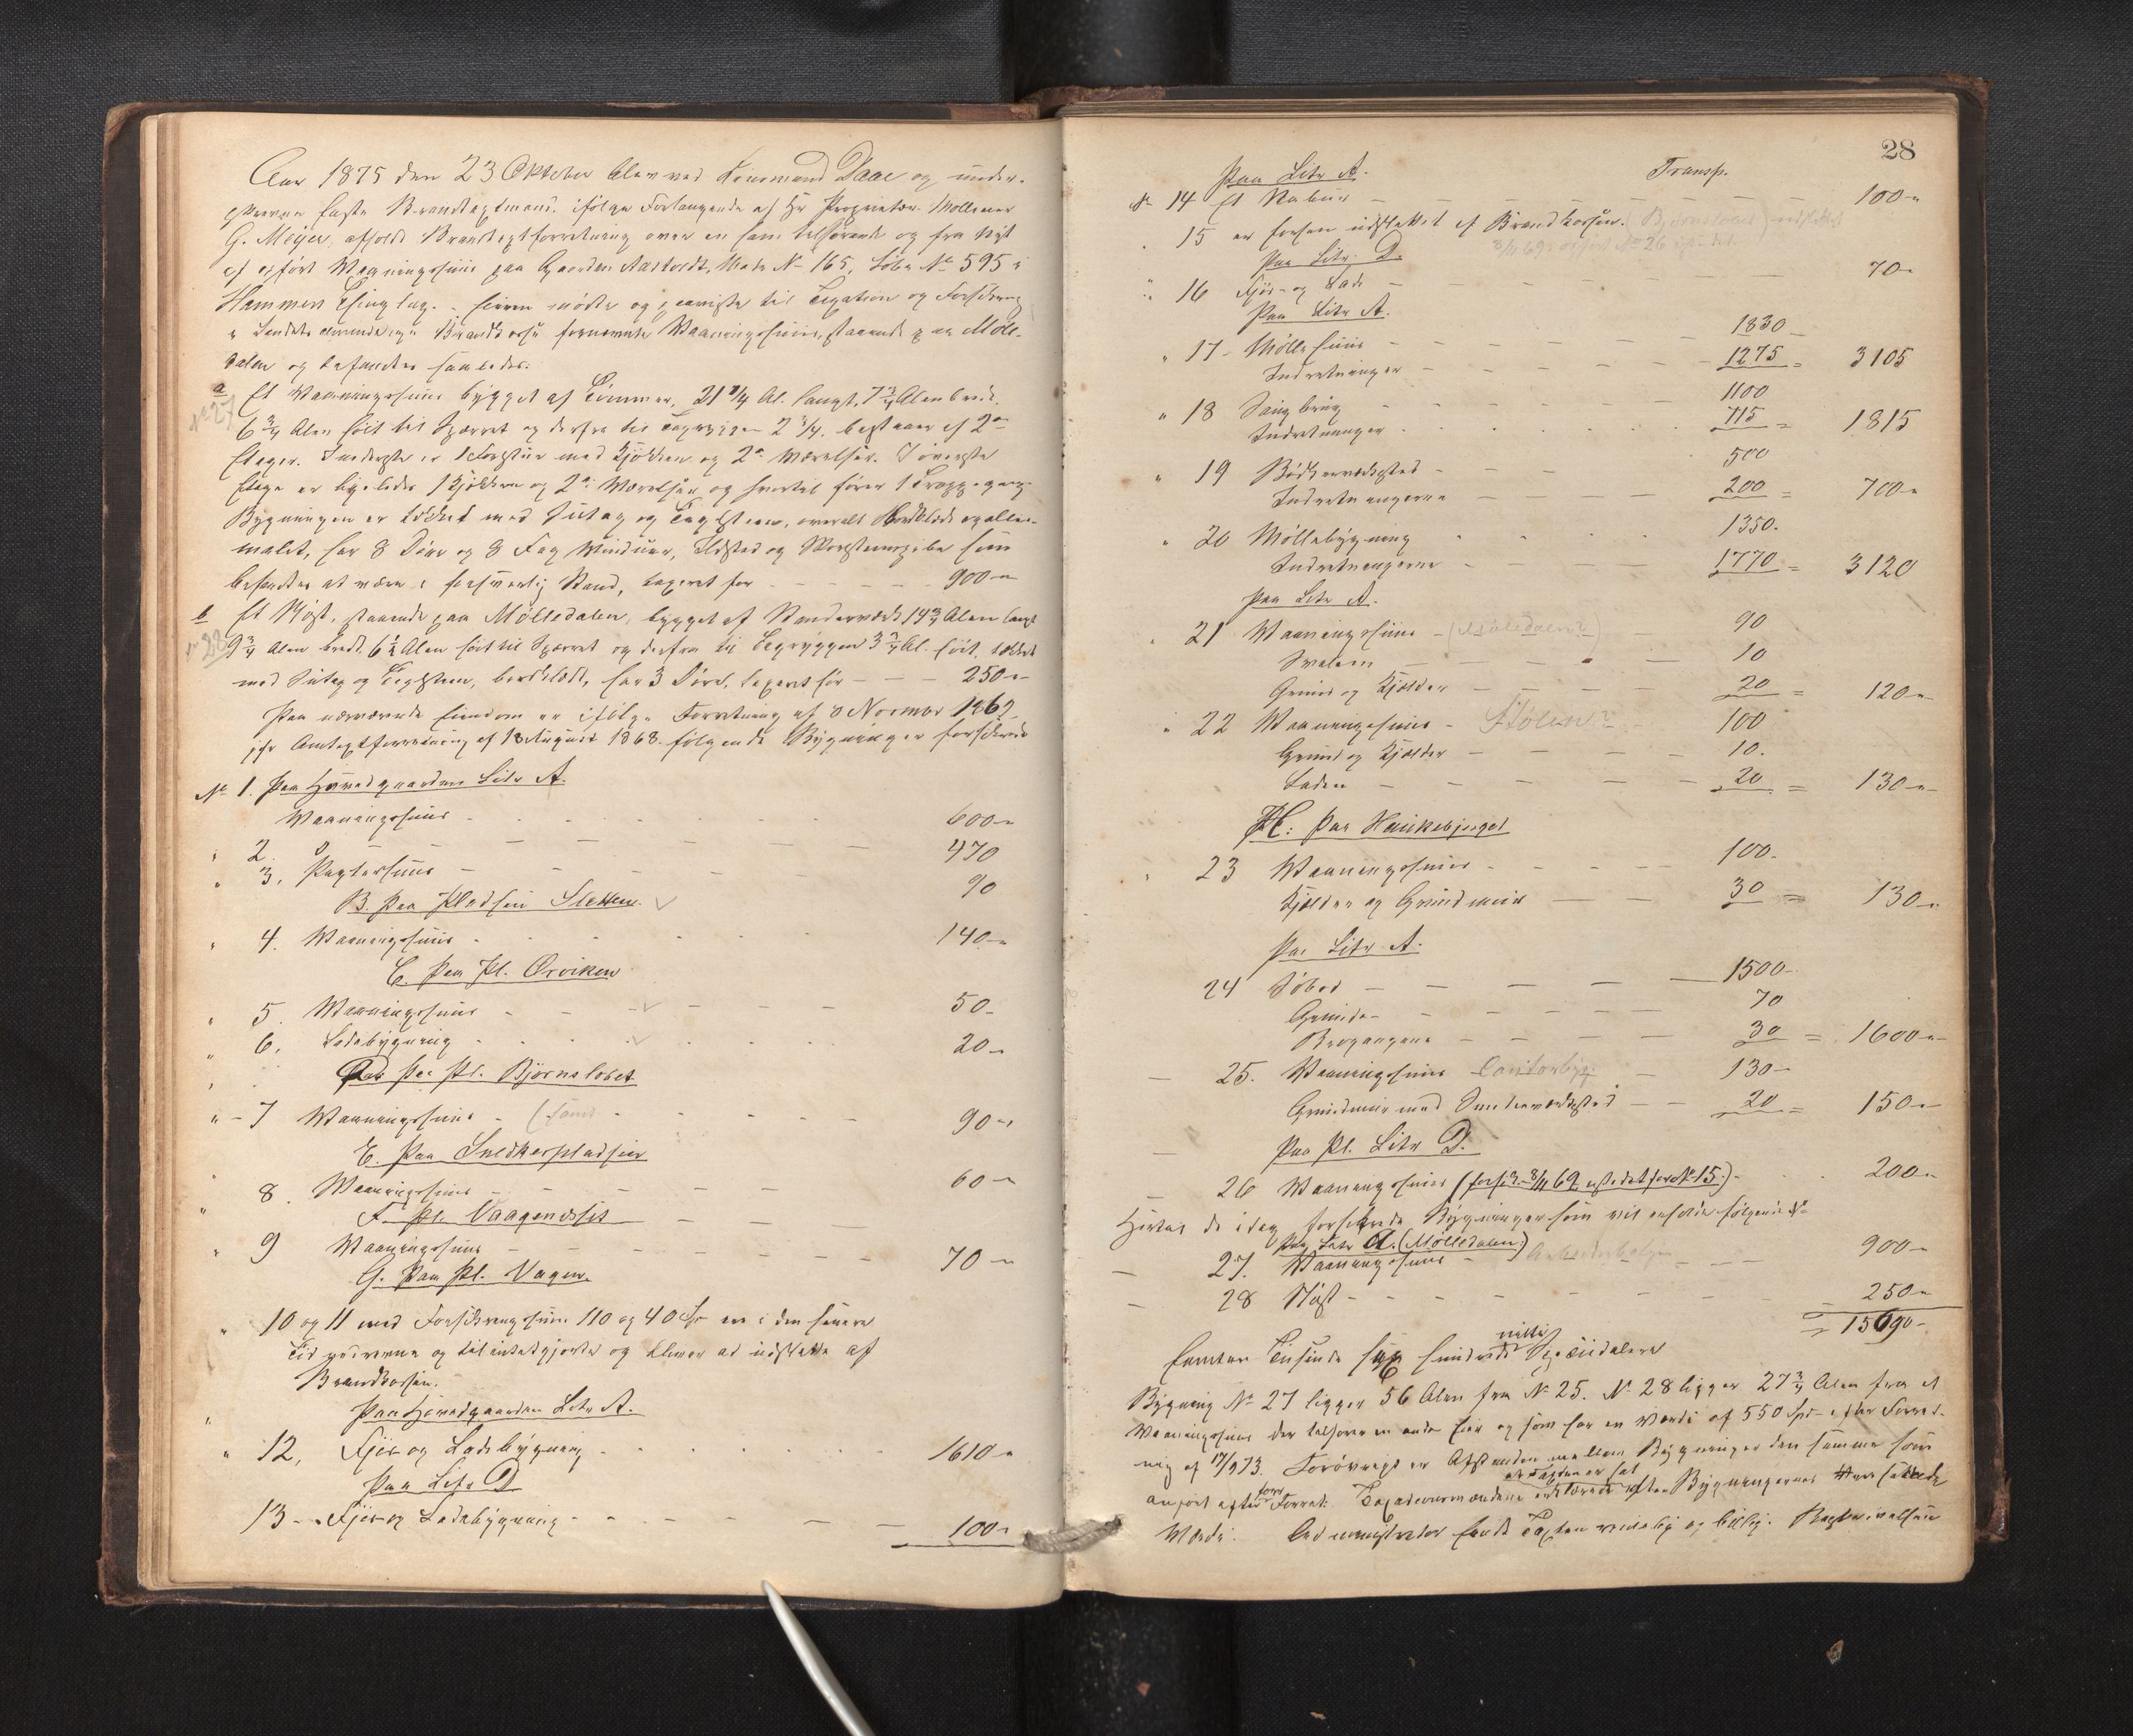 Aar 1875 den 23 Oktober blev ved Lensmand Daae og under-
skrevne faste Brandtaxtmænd ifølge Forlangende af Hr Proprietær Møllener
G. Meÿer, afholdt Brandtaxtforretning over en ham tilhørende og fra Nyt
af opført Vaaningshuus paa Gaarden Aastvedt, Matr No 165, Løbe No 595 i
Hammers Thinglag. Eieren mødte og paaviste til Taxation og Forsikring
i Landets almindelige Brandkasse fornævnte Vaaningshuus, staaende paa Mølle-
dalen og befandtes saaledes:
a Et Vaaningshuus bygget af Tømmer, 21 1/4 Al. langt, 7 3/4 Alen bredt,
No 27
6 3/4 Alen høit til Sparret og derfra til Tagryggen 2 3/4. bestaaer af 2de
Etager. I nederste er 1 Forstue med Kjøkken og 2de Værelser. I øverste
Etage er ligeledes 1 Kjøkken og 2de Værelser og hvortil fører 1 Trappegang.
Bygningen er tækket med Sutag og Taglsteen, overalt Bordklædt og allee-
malet, har 8 Døre og 8 Fag Vinduer, Ildsted og Skorsteenspibe som
befandtes at være i forsvarlig Stand, taxeret for - - - 900 „
b Et Nøst, staaende paa Mølledalen, bygget af Standerværk 14 3/4 Alen langt
No 28
9 3/4 Alen bredt, 6 1/2 Alen høit til Sparret og derfra til Tagryggen 3 3/4 Al. høit, tækket
med Sutag og Taglsteen, bordklædt, har 3 Døre, taxeret for - - - 250 „
Paa nærværende Eiendom er ifølge Forretning af 8 Novmbr 1869
jfr Omtaxtforretning af 18 August 1868 følgende Bygninger forsikrede
No 1. Paa Hovedgaarden Litr A.
Vaaningshuus - - - 600 „
„ 2. do - - - 470
„ 3. Pagterhuus - - - 90
B. Paa Pladsen Sletten.
„ 4. Vaaningshuus - - - 140 „
C. Paa Pl. Orviken
„ 5. Vaaningshuus - - - 50 -
„ 6. Ladebygning - - - 20 „
Paa Pl. Bjørnslobet
„ - 7 Vaaningshuus - - - 90 „
E. Paa Snedkerpladsen
„ 8. Vaaningshuus - - - 60 „
F. Pl. Vaagenæsset
„ 9 Vaaningshuus - - - 70 „
G. Paa Pl. Vagen.
„ 10 og 11 med Forsikringssum 110 og 40 Spd er i den senere
Tid nedrevne og tilintetgjorte og bliver at udslette af
Brandkassen.
Paa Hovedgaarden Litr A.
„ 12, Fjøs og Ladebygning - - - 1610 „
Paa Litr D
13 - Fjøs og Ladebygning - - - 100 „
28
Paa Litr A. Transp.
No 14 Et Stabuur - - - 100 „
„ 15 er forhen udslettet af Brandkassen.
Paa Litr D.
„ 16 Fjøs- og Lade - - - 70 „
Paa Litr A.
„ 17 - Møllehuus - - - 1830
Indretninger - - - 1275 = 3105
„ 18 Saugbrug - - - 1100
Indretninger - - - 715 = 1815
„ 19 Bødkerværksted - - - 500
Indretningerne - - - 200 = 700 „
„ 20 Møllebygning - - - 1350.
Indretningerne - - - 1770 = 3120
Paa Litr A.
„ 21 Vaaningshuus - (Mølledalen?) 90
Svalen - - - 10
Gruud og Kjælder - - - 20 = 120 „
„ 22 Vaaningshuus - Stølen? 100
Gruud og Kjælder - - - 10.
Laden - - - 20 = 130 „
H: Paa Haukebjerget
„ 23 Vaaningshuus - - - 100.
Kjælder og Gruudmuur - - - 30 = 130 „
Paa Litr A.
24 Søbod - - - 1500 -
Gruuden - - - 70
Brogangene - - - 30 = 1600 „
25. Vaaningshuus Contorbyg. - 130 -
Gruudmuur med Snedkerværksted - - 20 = 150 „
Paa Pl. Litr D.
26 Vaaningshuus (fors. 8/11 69 istedetfor No 15.) - 200 „
Hertil de idag forsikrede Bygninger som vil erholde følgende No
Paa Litr A. (Mølledalen)
27. Vaaningshuus - Arbeiderbolger - 900 „
28 Nøst - - - 250 „
= 15690 -
Femten Tusinde sex hundrede nitti Speciedalere
Bygning No 27 ligger 56 Alen fra No 25. No 28 ligger 27 3/4 Alen fra et
Vaaningshuus der tilhører en anden Eier og som har en Værdi af 550 Spd efter Forret-
ning af 17/9 73. Forøvrigt er Afstanden mellem Bygninger den samme som
anført efter forr Forret. Taxationsmændene erklærede at Taxten er sat efter Bygningernes sande
Værdi. Administrator fandt Taxten rimelig og billig. Beskrivelsen